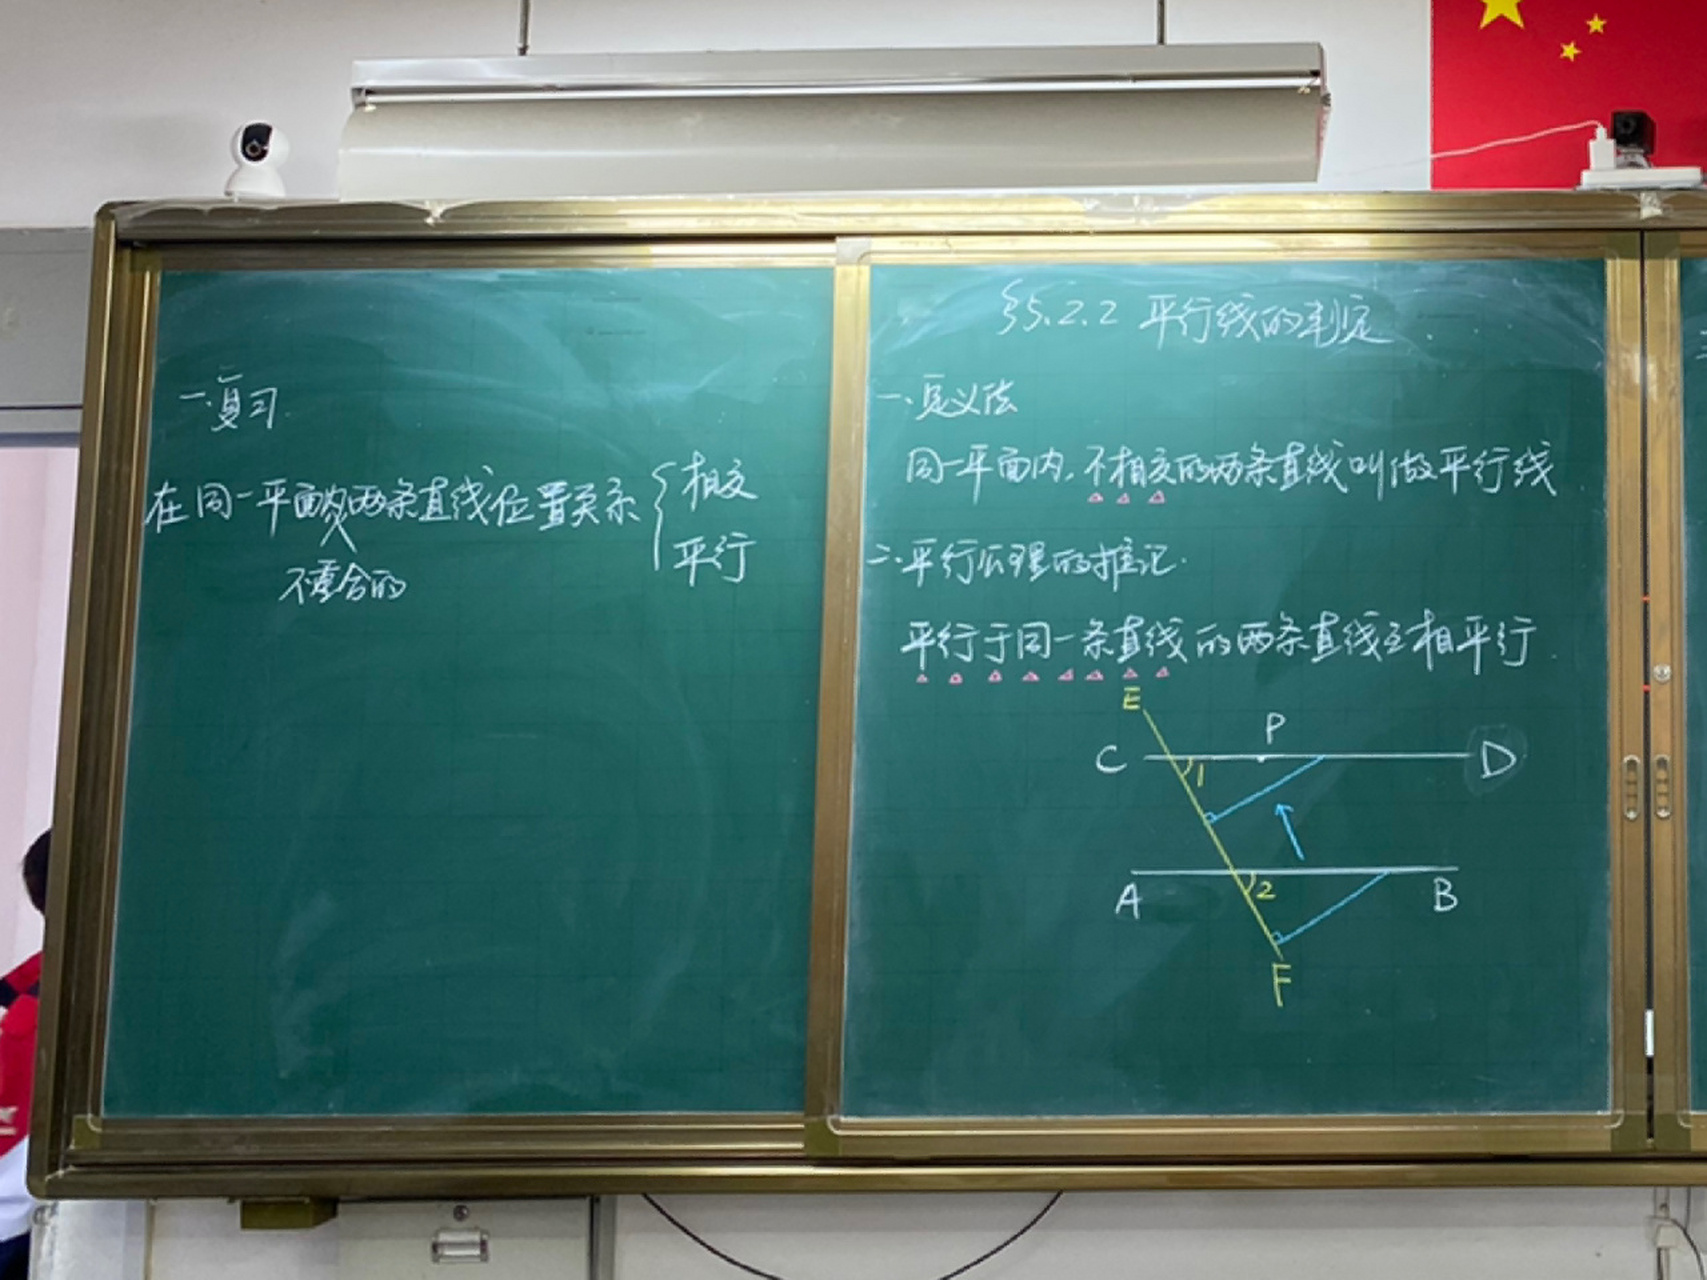 一.复习.
在同一平面内两条直线位置关系
相交
平行
不重合的
§5.2.2 平行线的判定
一、定义法
同一平面内,不相交的两条直线叫做平行线
二.平行公理的推论.
平行于同一条直线的两条直线互相平行.
E
P
C
D
1
A
2
B
F